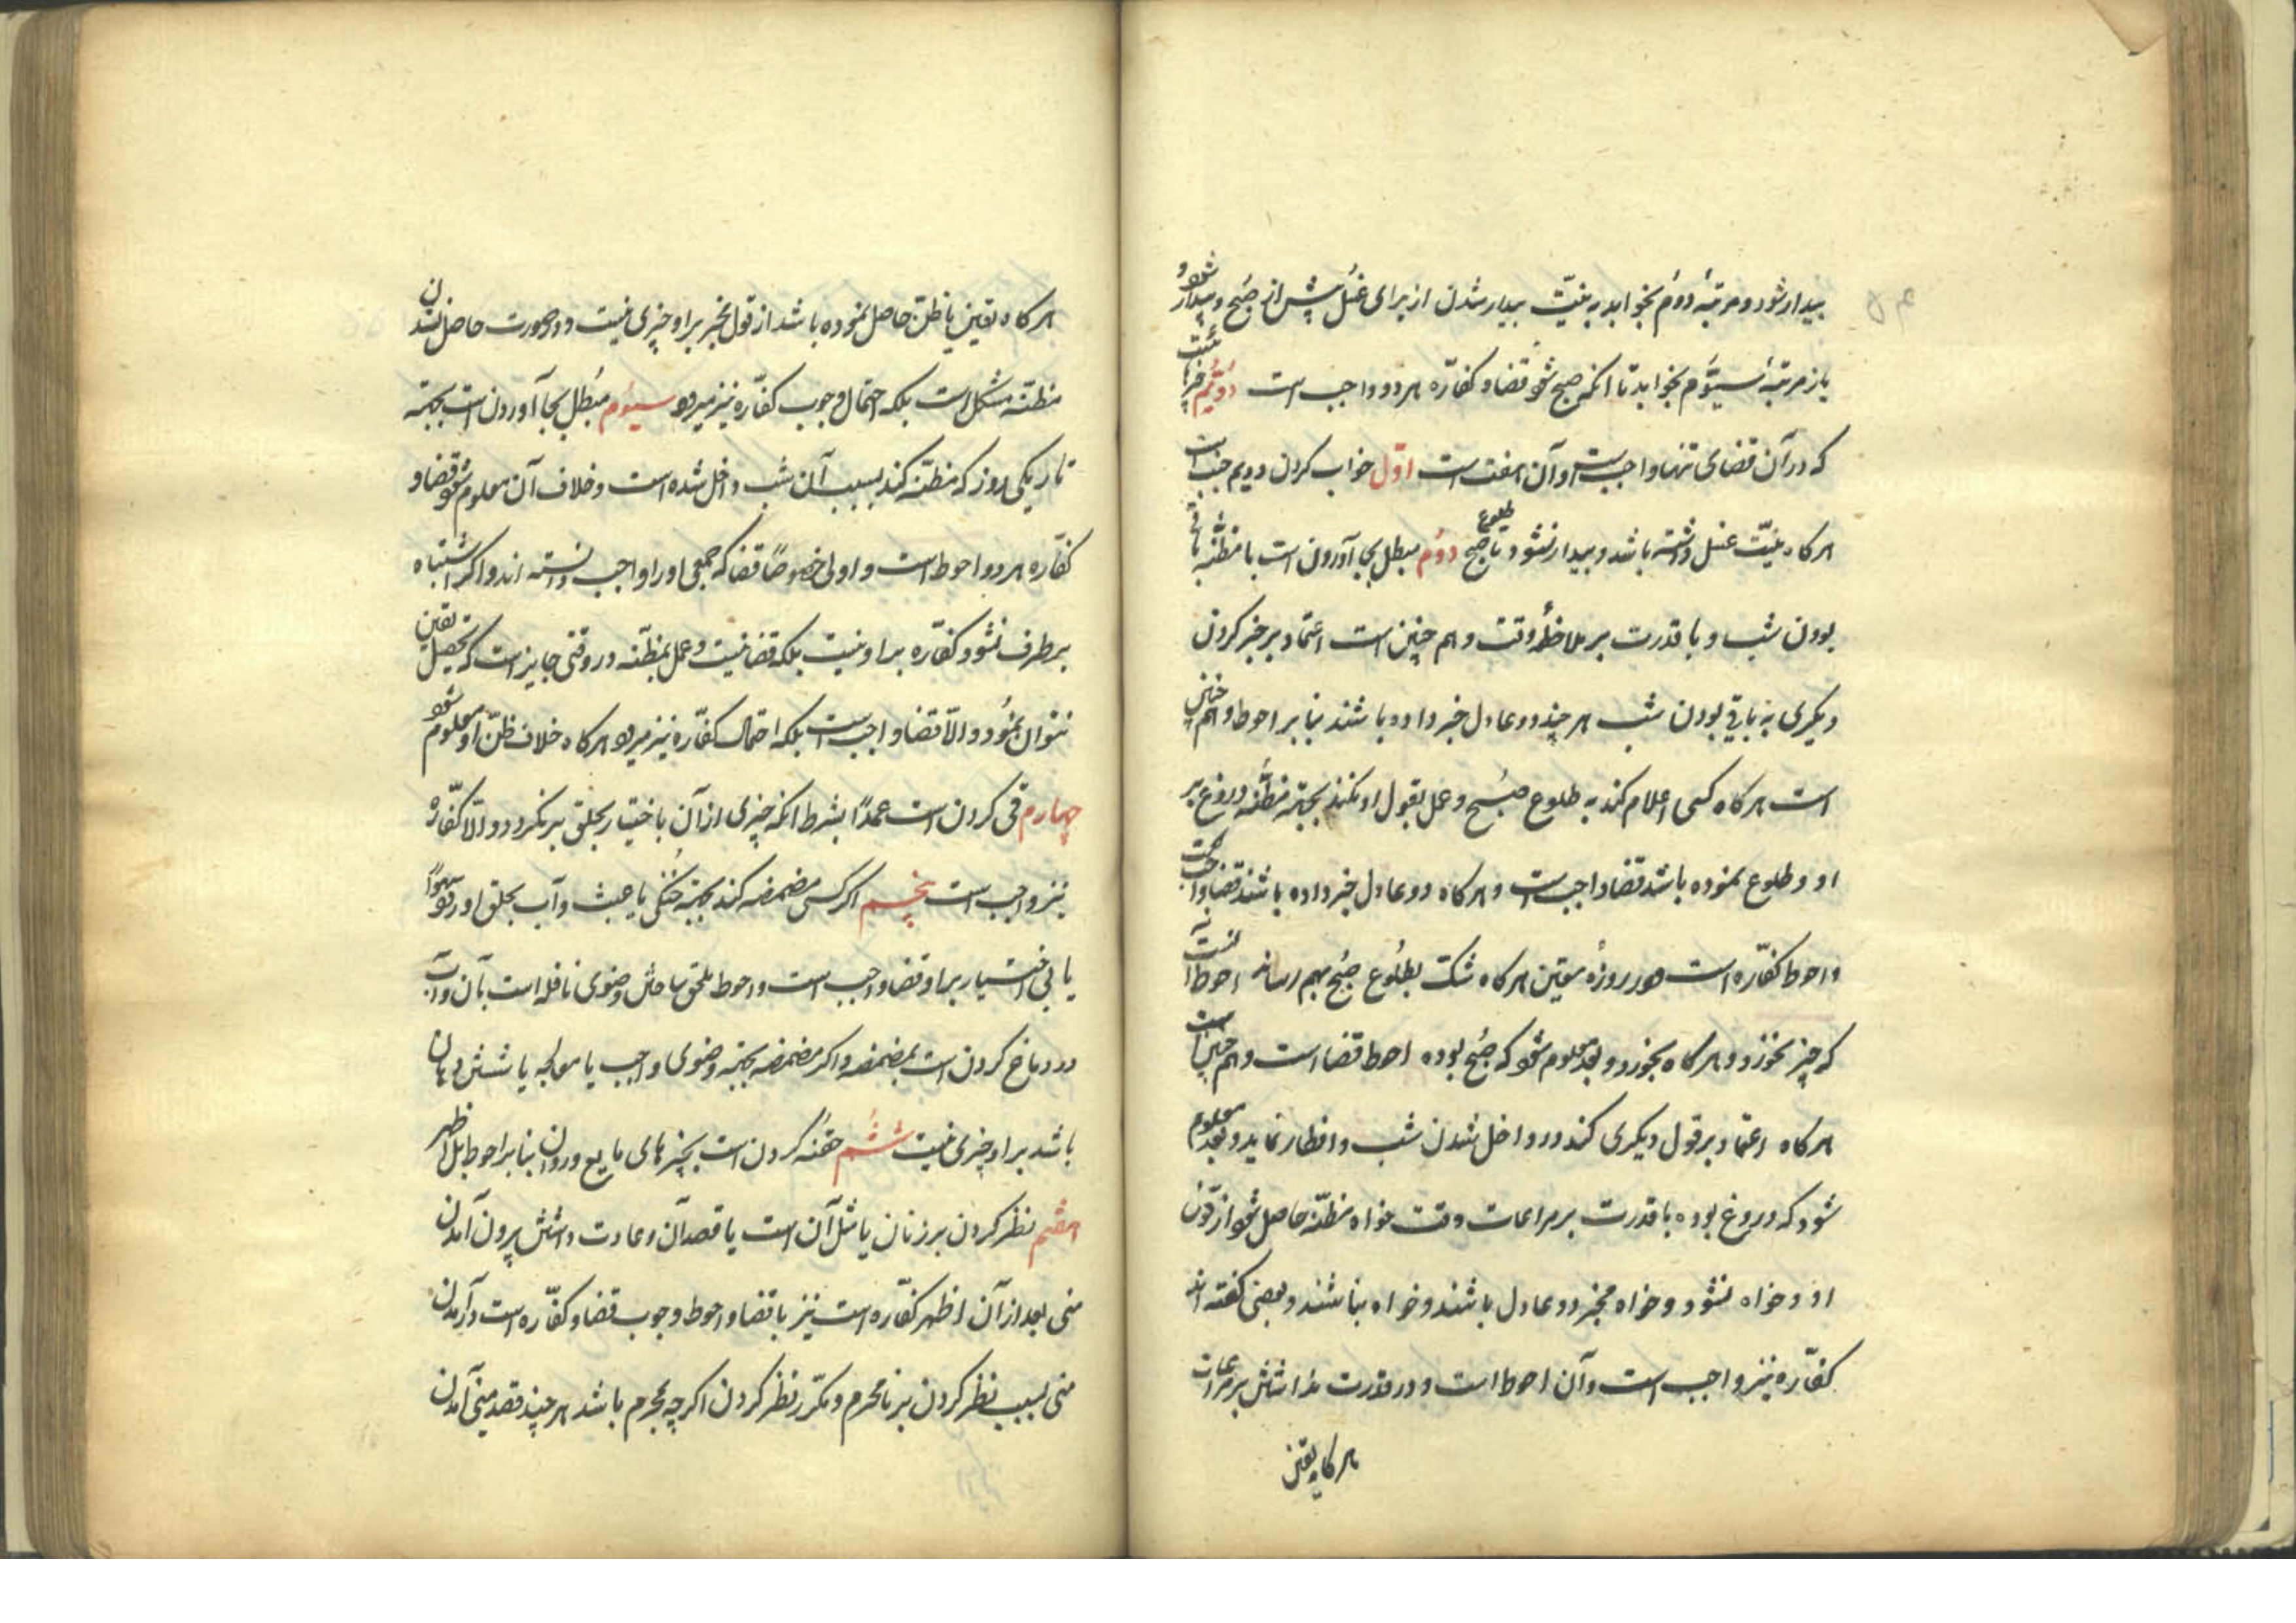 بیدار شود و مرتبهٔ دوم بخوابد به نیّت بیدار شدن از برای غسل پیش از صبح و بیدار شود و
باز مرتبهٔ سیّوم بخوابد تا انکه صبح شود قضا و کفّاره هر دو واجب است دوّیّم
که در آن قضای تنها واجب است و آن هفت است اوّل خواب کردن دویم جنب است
هرکاه نیّت غسل داشته باشد و بیدار نشود تا طلوع صبح دوّم مبطل بجا آوردن است با مظنّه باقی
بودن شب و با قدرت بر ملاحظهٔ وقت و هم چنین است اعتماد بر خبر کردن
دیکری به باقی بودن شب هر چند دو عادل خبر داده باشند بنا بر احوط و هم چنین
است هرکاه کسی اعلام کند به طلوع صبح و عمل بقول او نکند بجهة مظنّه دروغ بر
او و طلوع نموده باشد قضا واجب است و هرکاه دو عادل خبر داده باشند قضا واجب است
و احوط کفّاره است و در روزهٔ معیّن هرکاه شک بطلوع صبح بهم رساند احوط آنست
که چیز نخورد و هرکاه بخورد و بعد معلوم شود که صبح بوده احوط قضا است و هم چنین است
هرکاه اعتماد بر قول دیکری کند در داخل شدن شب و افطار نماید و بعد معلوم
شود که دروغ بوده با قدرت بر مراعات وقت خواه مظنّه حاصل شود از قول
او و خواه نشود و خواه مخبر دو عادل باشند و خواه نباشند و بعضی کفته اند
کفّاره نیز واجب است و آن احوط است و در قدرت نداشتن بر مراعات
هرکاه یقین
هرکاه یقین یا ظنّ حاصل نموده باشد از قول مخبر بر او چیزی نیست و در صورت حاصل نشدن
مظنّه مشکل است بلکه احتمال وجوب کفّاره نیز میرود سیّوم مبطل بجا آوردن است بجهة
تاریکی روز که مظنّه کند بسبب آن شب داخل شده است و خلاف آن معلوم شود قضا و
کفّاره هر دو احوط است و اولی خصوصًا قضا که جمعی او را واجب دانسته اند و اکر اشتباه
برطرف نشود کفّاره بر او نیست بلکه قضا نیست و عمل بمظنّه در وقتی جایز است که تحصیل یقین
نتوان نمود و الّا قضا واجب است بلکه احتمال کفّاره نیز میرود هرکاه خلاف ظنّ او معلوم شود
چهارم قی کردن است عمدًا بشرط انکه چیزی از آن باختیار بحلق برنکردد و الّا کفّاره
نیز واجب است پنجم اکر کسی مضمضه کند بجهة خنکی یا عبث و آب بحلق او رود سهوًا
یا بی اختیار بر او قضا واجب است و احوط ملحق ساختن وضوی نافله است بآن و آب
در دماغ کردن است بمضمضه و اکر مضمضه بجهة وضوی واجب یا معالجه یا شستن دهان
باشد بر او چیزی نیست ششم حقنه کردن است بچیزهای مایع و روان بنا بر احوط بل اظهر
هفتم نظر کردن بر زنان یا مثل آن است با قصد آن و عادت داشتن بیرون آمدن
منی بعد از آن اظهر کفّاره است نیز با قضا و احوط وجوب قضا و کفّاره است در آمدن
منی بسبب نظر کردن بر نامحرم و مکرّر نظر کردن اکرچه محرم باشد هر چند قصد منی آمدن